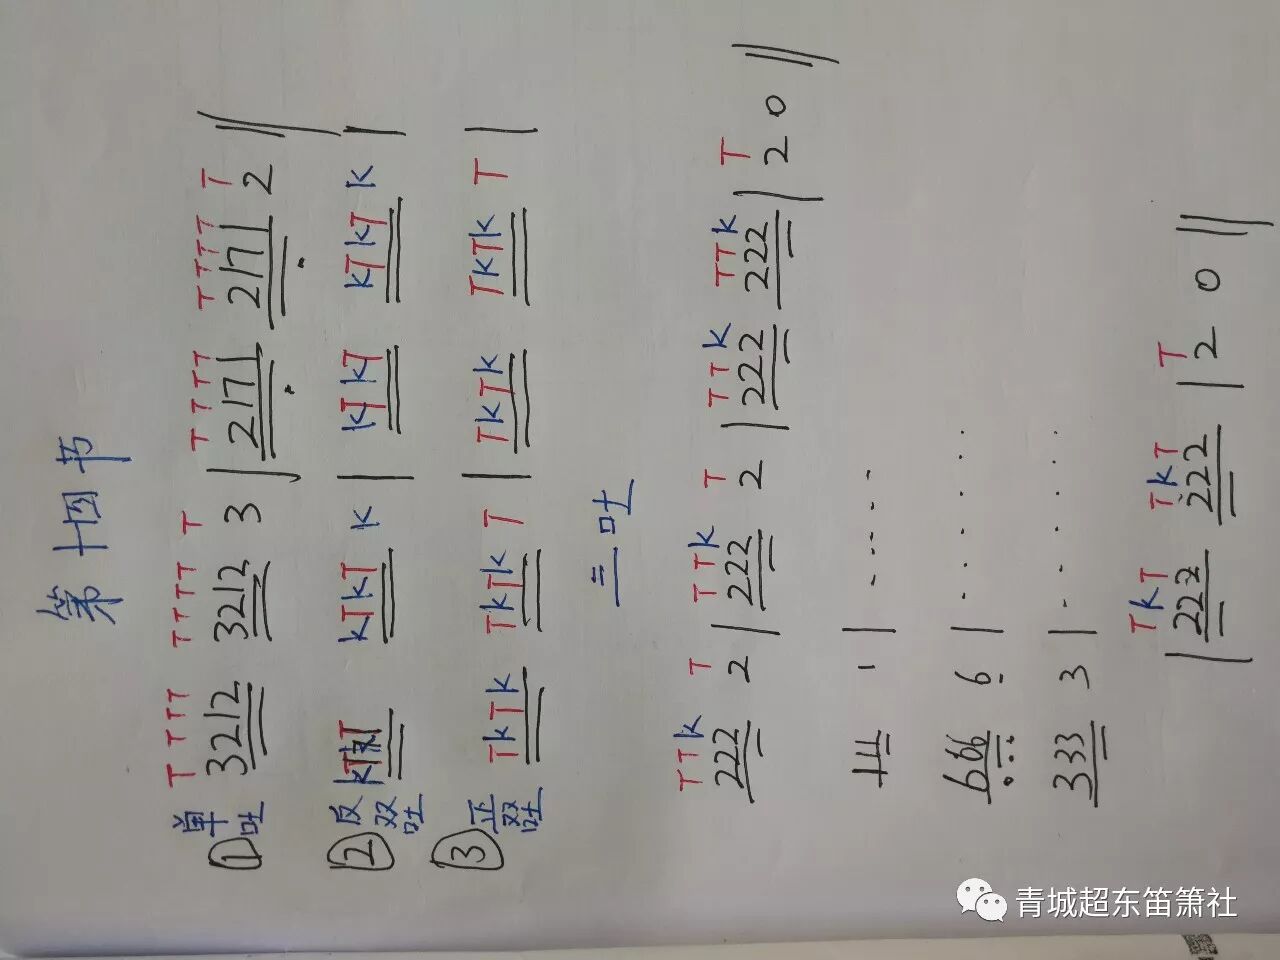 第十四节
TTTT TTTT T TTTT TTTT T
①单吐 3212 3212 3 | 2171 2171 2 ‖
②反双吐 KTKT KTKT K | KTKT KTKT K |
③正双吐 TKTK TKTK T | TKTK TKTK T |
三吐
TTK T TTK T TTK TTK T
222 2 | 222 2 | 222 222 | 2 0 ‖
111 1 | · · · · · ·
666 6 | · · · · ·
333 3 | · · · · ·
TKT TKT T
| 222 222 | 2 0 ‖
青城超东笛箫社